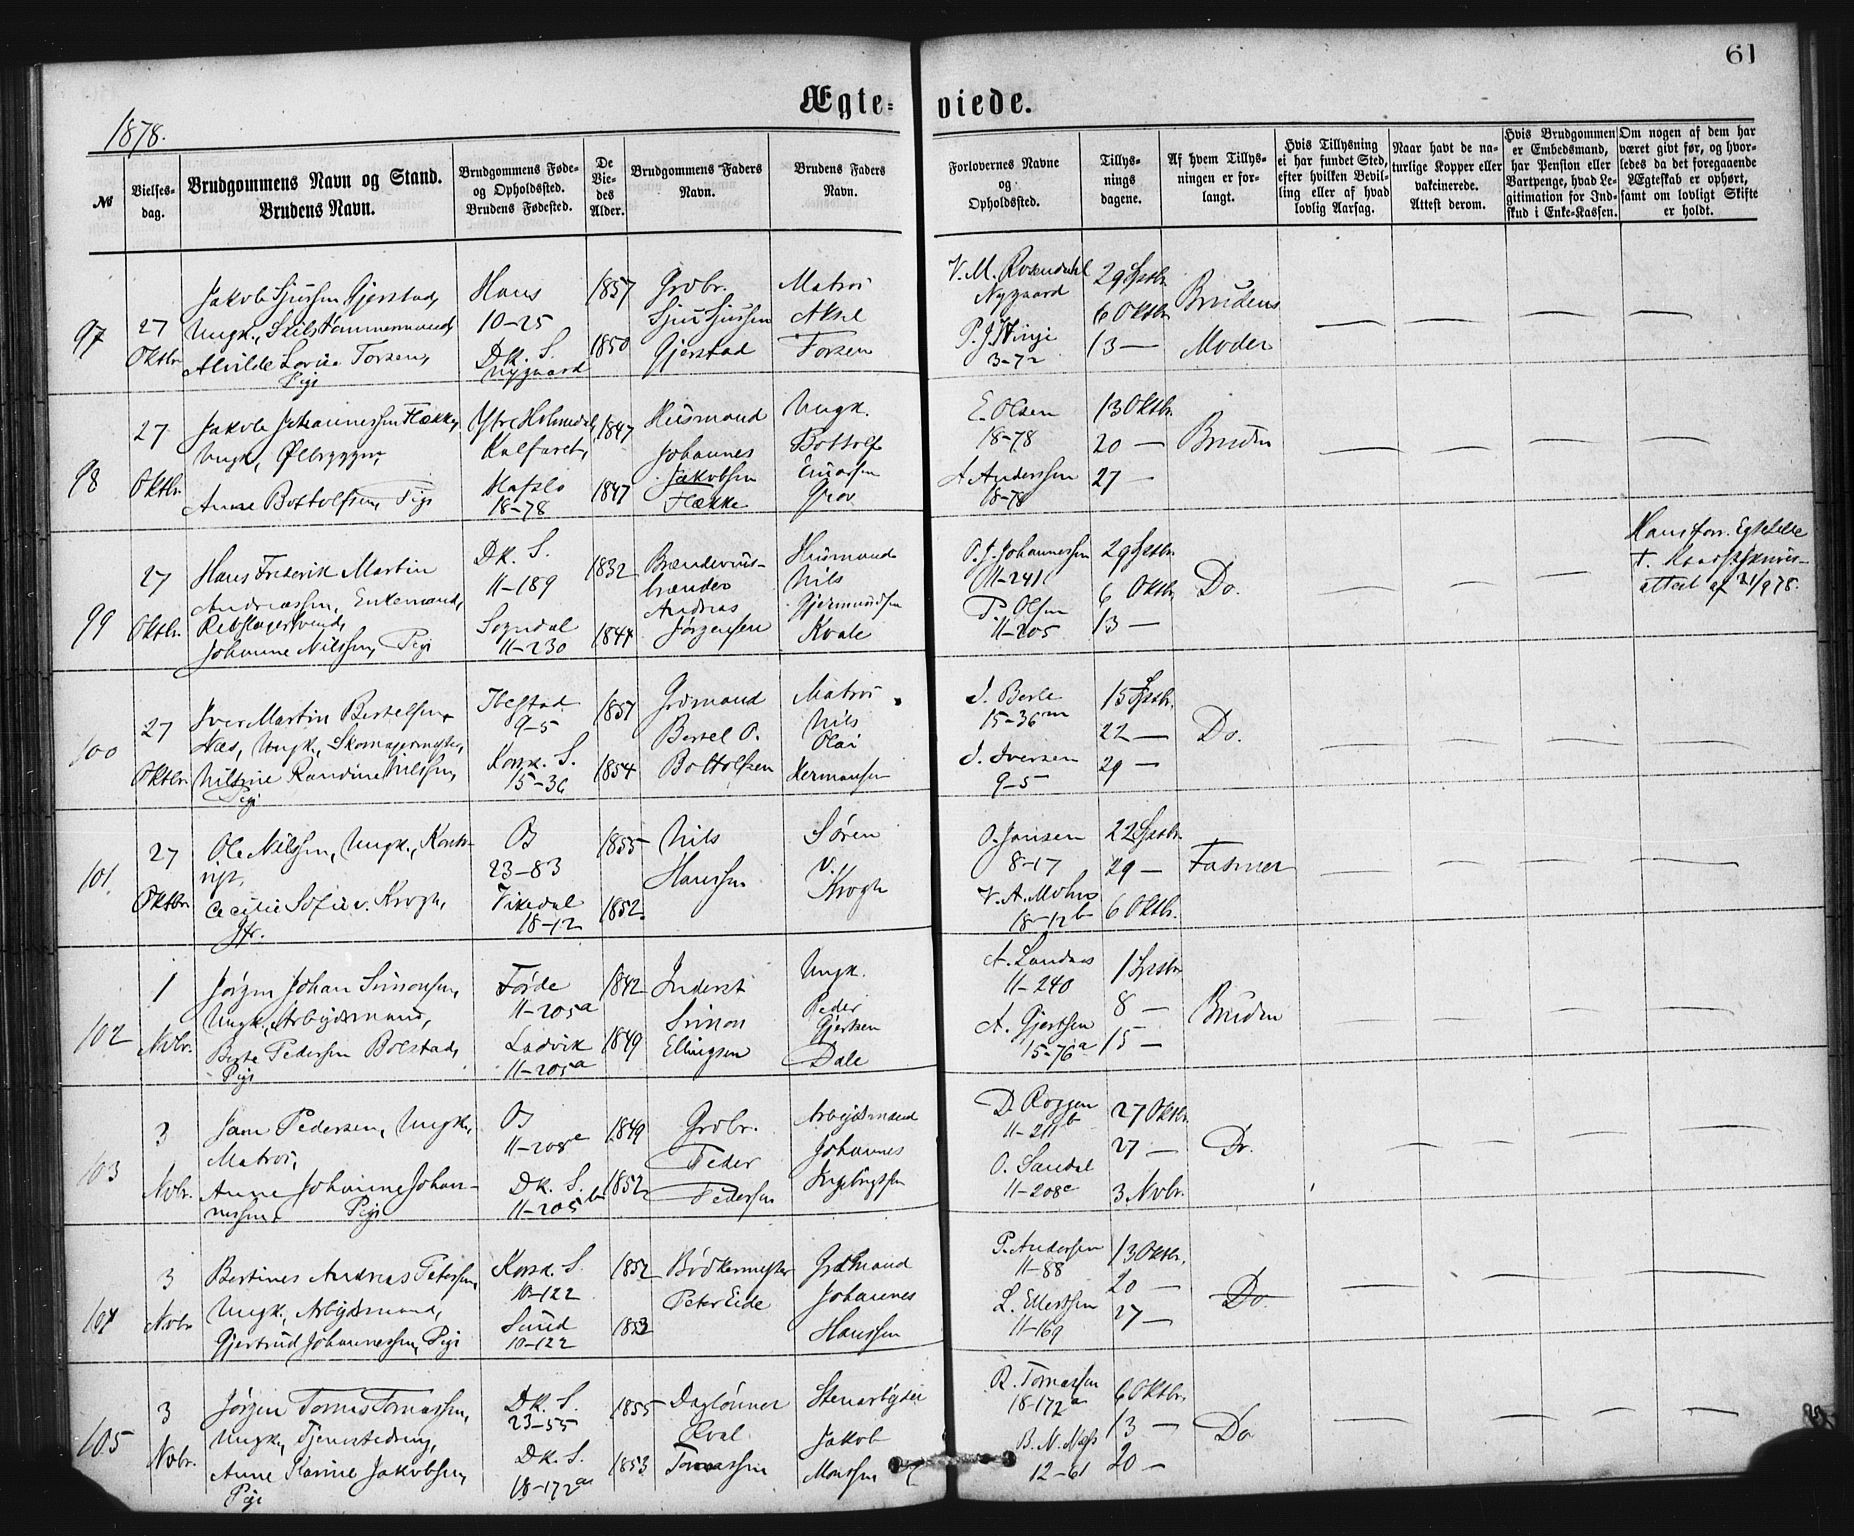 61
Ægte- viede.
1878.
№
Vielses-
dag.
Brudgommens Navn og Stand.
Brudens Navn.
Brudgommens Føde-
og Opholdssted.
Brudens Fødested.
De
Vie-
des
Alder.
Brudgommens Faders
Navn.
Brudens Faders
Navn.
Forlovernes Navne
og
Opholdssted.
Tillys-
nings
dagene.
Af hvem Tillys-
ningen er for-
langt.
Hvis Tillysning
ei har fundet Sted,
efter hvilken Bevil-
ling eller af hvad
lovlig Aarsag.
Naar havt de na-
turlige Kopper eller
vakcinerede.
Attest derom.
Hvis Brudgommen
er Embedsmand,
har Pension eller
Vartpenge, hvad Le-
gitimation for Ind-
skud i Enke-Kassen.
Om nogen af dem har
været givt før, og hvor-
ledes da det foregaaende
Ægteskab er ophørt,
samt om lovligt Skifte
er holdt.
97
27
Oktbr.
Jakob Sjursen Gjerstad,
Ungk.,
Alvilde Torsen,
Pige
Haus
10-25
Dk. S.
Nygaard
1857
1850
Grdbr.
Sjur Sjursen
Gjerstad
Matros
Aksel
Torsen
V. M. Rosendahl
Nygaard
P. J. Vinje
3-72
29 Sptbr.
6 Oktbr.
13 —
Brudens
Moder
98
27
Oktbr.
Jakob Johannessen Flække,
Ungk., Ølbrygger,
Anne Bottolfsen, Pige
Ytre Holmedal
Kalfaret,
Hafslo
18-78
1847
1847
Husmand
Johannes
Jakobsen
Flække
Ungk.
Bottolf
Einarsen
Grov
E. Olsen
18-78
A Anderssen
18-78
13 Oktbr.
20 —
27 —
Bruden
99
27
Oktbr.
Hans Frederik Martin
Andreassen, Enkemand,
Rebslagersvend,
Johanne Nilssen, Pige
Dk. S.
11-189
Sogndal
11-230
1832
1844
Brændeviins-
brænder
Andreas
Jørgensen
Husmand
Nils
Gjermundsen
Kvale
O. J. Johannessen
11-241
P. Olsen
11-205
29 Sptbr.
6 Oktbr.
13 —
Do.
Hans forr. Egtefelle
†.
attest af 21/9 78.
100
27
Oktbr.
Iver Martin Bertelsen
Næs, Ungk., Skomagermester,
Nilsine Randine Nilssen,
Pige
Ibestad
9-5
Korsk. S.
15-36
1857
1854
Grdmand
Bertel O.
Bottolfsen
Matros
Nils
Olai
Hermansen
J. Berle
15-36
J. Iversen
9-5
15 Sptbr.
22 —
29 —
Do.
101
27
Oktbr.
Ole Nilssen, Ungk., Konto-
rist,
Cecilie Sofie v. Krogh,
Jfr.
Os
23-83
Vikedal
18-12
1855
1852
Nils
Hanssen
Søren
v.
Krogh
O. Jansen
8-17
V. A. Mohn
18-12b
22 Sptbr.
29 —
6 Oktbr.
Fasmer
102
1
Nvbr.
Jørgen Johan Simonsen,
Ungk., Arbeidsmand,
Berte Pedersen Bolstad,
Pige
Førde
11-205a
Ladvik
11-205a
1842
1849
Inderst
Simon
Ellingsen
Ungk.
Peder
Gjertsen
Dale
A. Landaas
11-240
A. Gjertsen
15-76a
1 Sptbr
8 —
15 —
Bruden
103
3
Nvbr.
Jann Pedersen, Ungk.,
Matros,
Anne Johanne Johan-
nessen, Pige
Os
11-208e
Dk. S.
11-205b
1849
1852
Grdbr.
Peder
Pedersen
Arbeidsmand
Johannes
Ingebrigtsen
D. Roggen
11-211b
O. Sandal
11-208e
27 Oktbr.
27 —
3 Nvbr.
Do.
104
3
Nvbr
Bertines Andreas Petersen,
Ungk., Arbeidsmand,
Gjertrud Johannessen, Pige
Korsk. S.
10-122
Sund
10-122
1852
1853
Bødkermester
Peter Eide
Grdmand
Johannes
Hanssen
P. Andersen
11-88
L. Ellertsen
11-169
13 Oktbr.
20 —
27 —
Do.
105
3
Nvbr.
Jørgen Tomas Tomassen,
Ungk., Tjenestedreng,
Anne Karine Jakobsen,
Pige
Dk. S.
23-55
Dk. S.
18-172a
1855
1853
Daglønner
Roal
Tomassen
Stenarbeider
Jakob
Monssen
R. Tomassen
18-172a
B. N. Næss
12-61
6 Oktbr.
13 —
20 —
Do